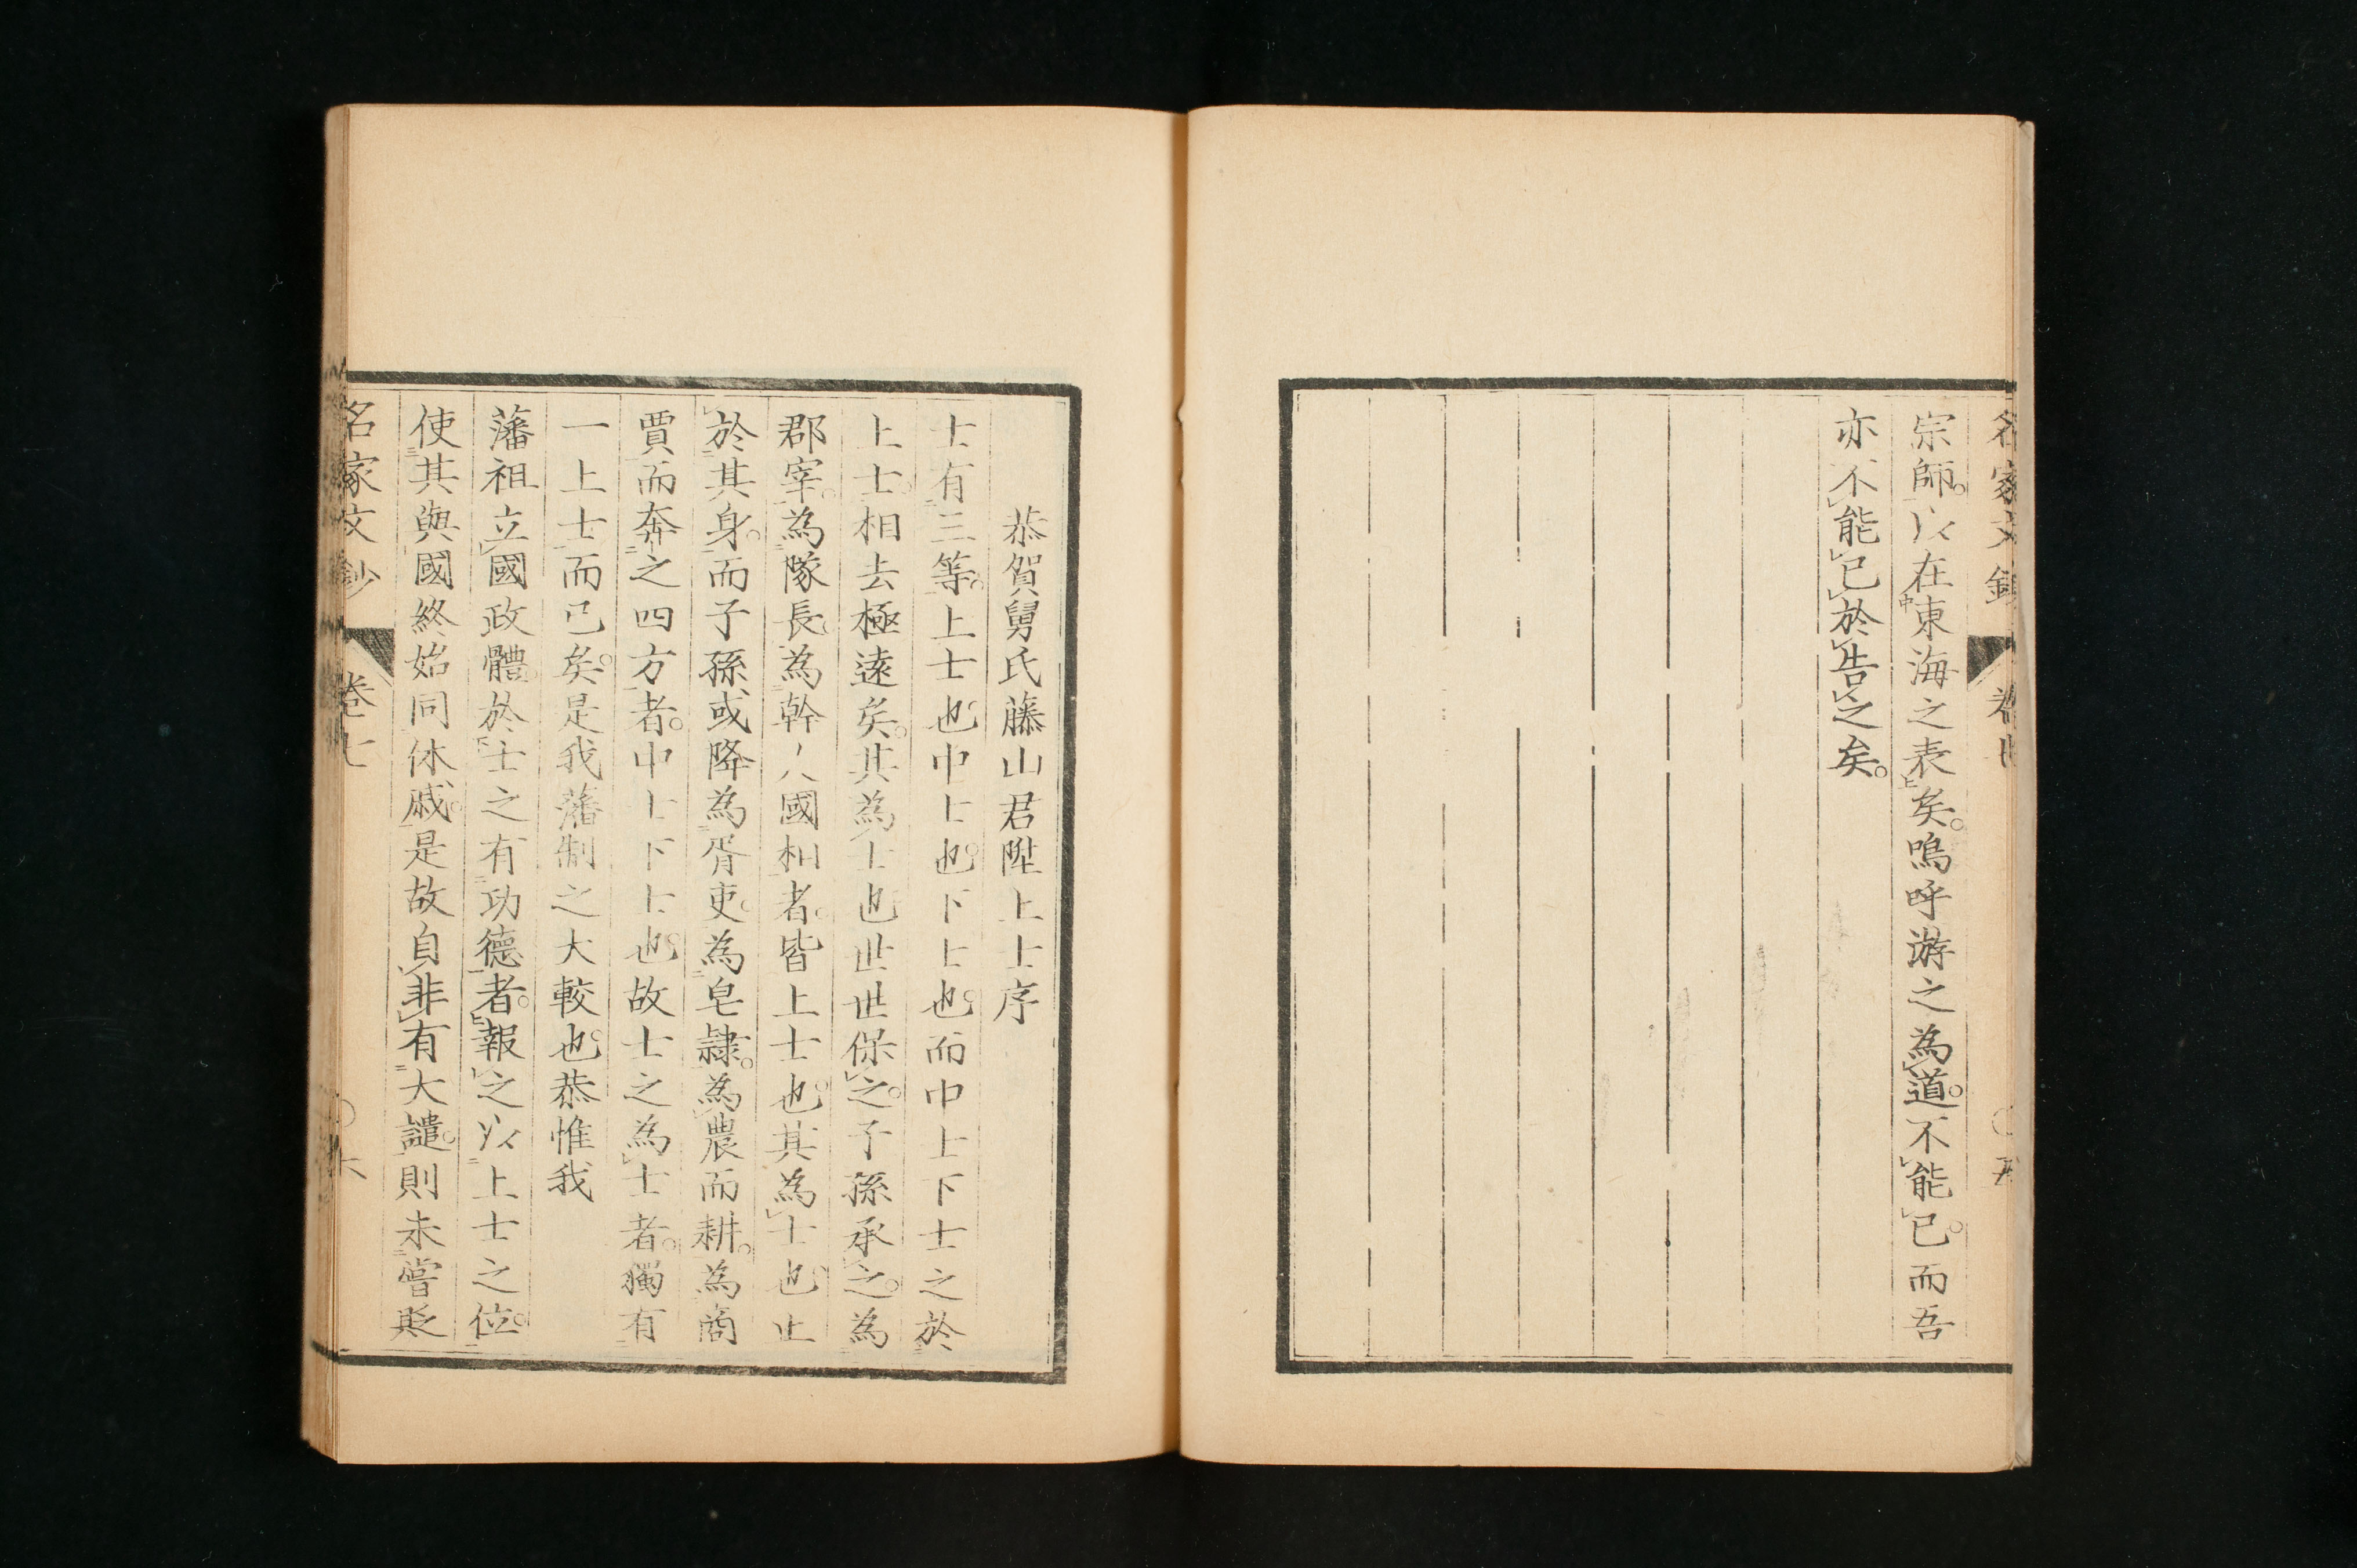 名家文鈔
宗師。以在東海之表矣。嗚呼游之為道。不能已。而吾
亦不能已於告之矣。
恭賀舅氏藤山君陞上士序
士有三等。上士也。中士也。下士也。而中士下士之於
上士。相去極遠矣。其為士也世世保之。子孫承之。為
郡宰。為隊長。為幹人國相者。皆上士也。其為士也止
於其身。而子孫或降為胥吏。為皂隷。為農而耕。為商
賈而奔之四方者。中士下士也。故士之為士者。獨有
一上士而已矣。是我藩制之大較也。恭惟我
藩祖立國政體。於士之有功德者。報之以上士之位。
使其與國終始同休戚。是故自非有大譴。則未嘗貶
名家文鈔 卷七 〇六